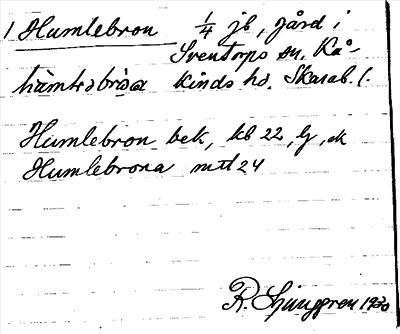 1 Humlebron 1/4 jb, gård i
Sventorps sn. Kå-
kinds hd. Skarab. l.
Humlebron bek, kb 22, lj, ek
Humlebrona mtl 24
R. Ljunggren 1930